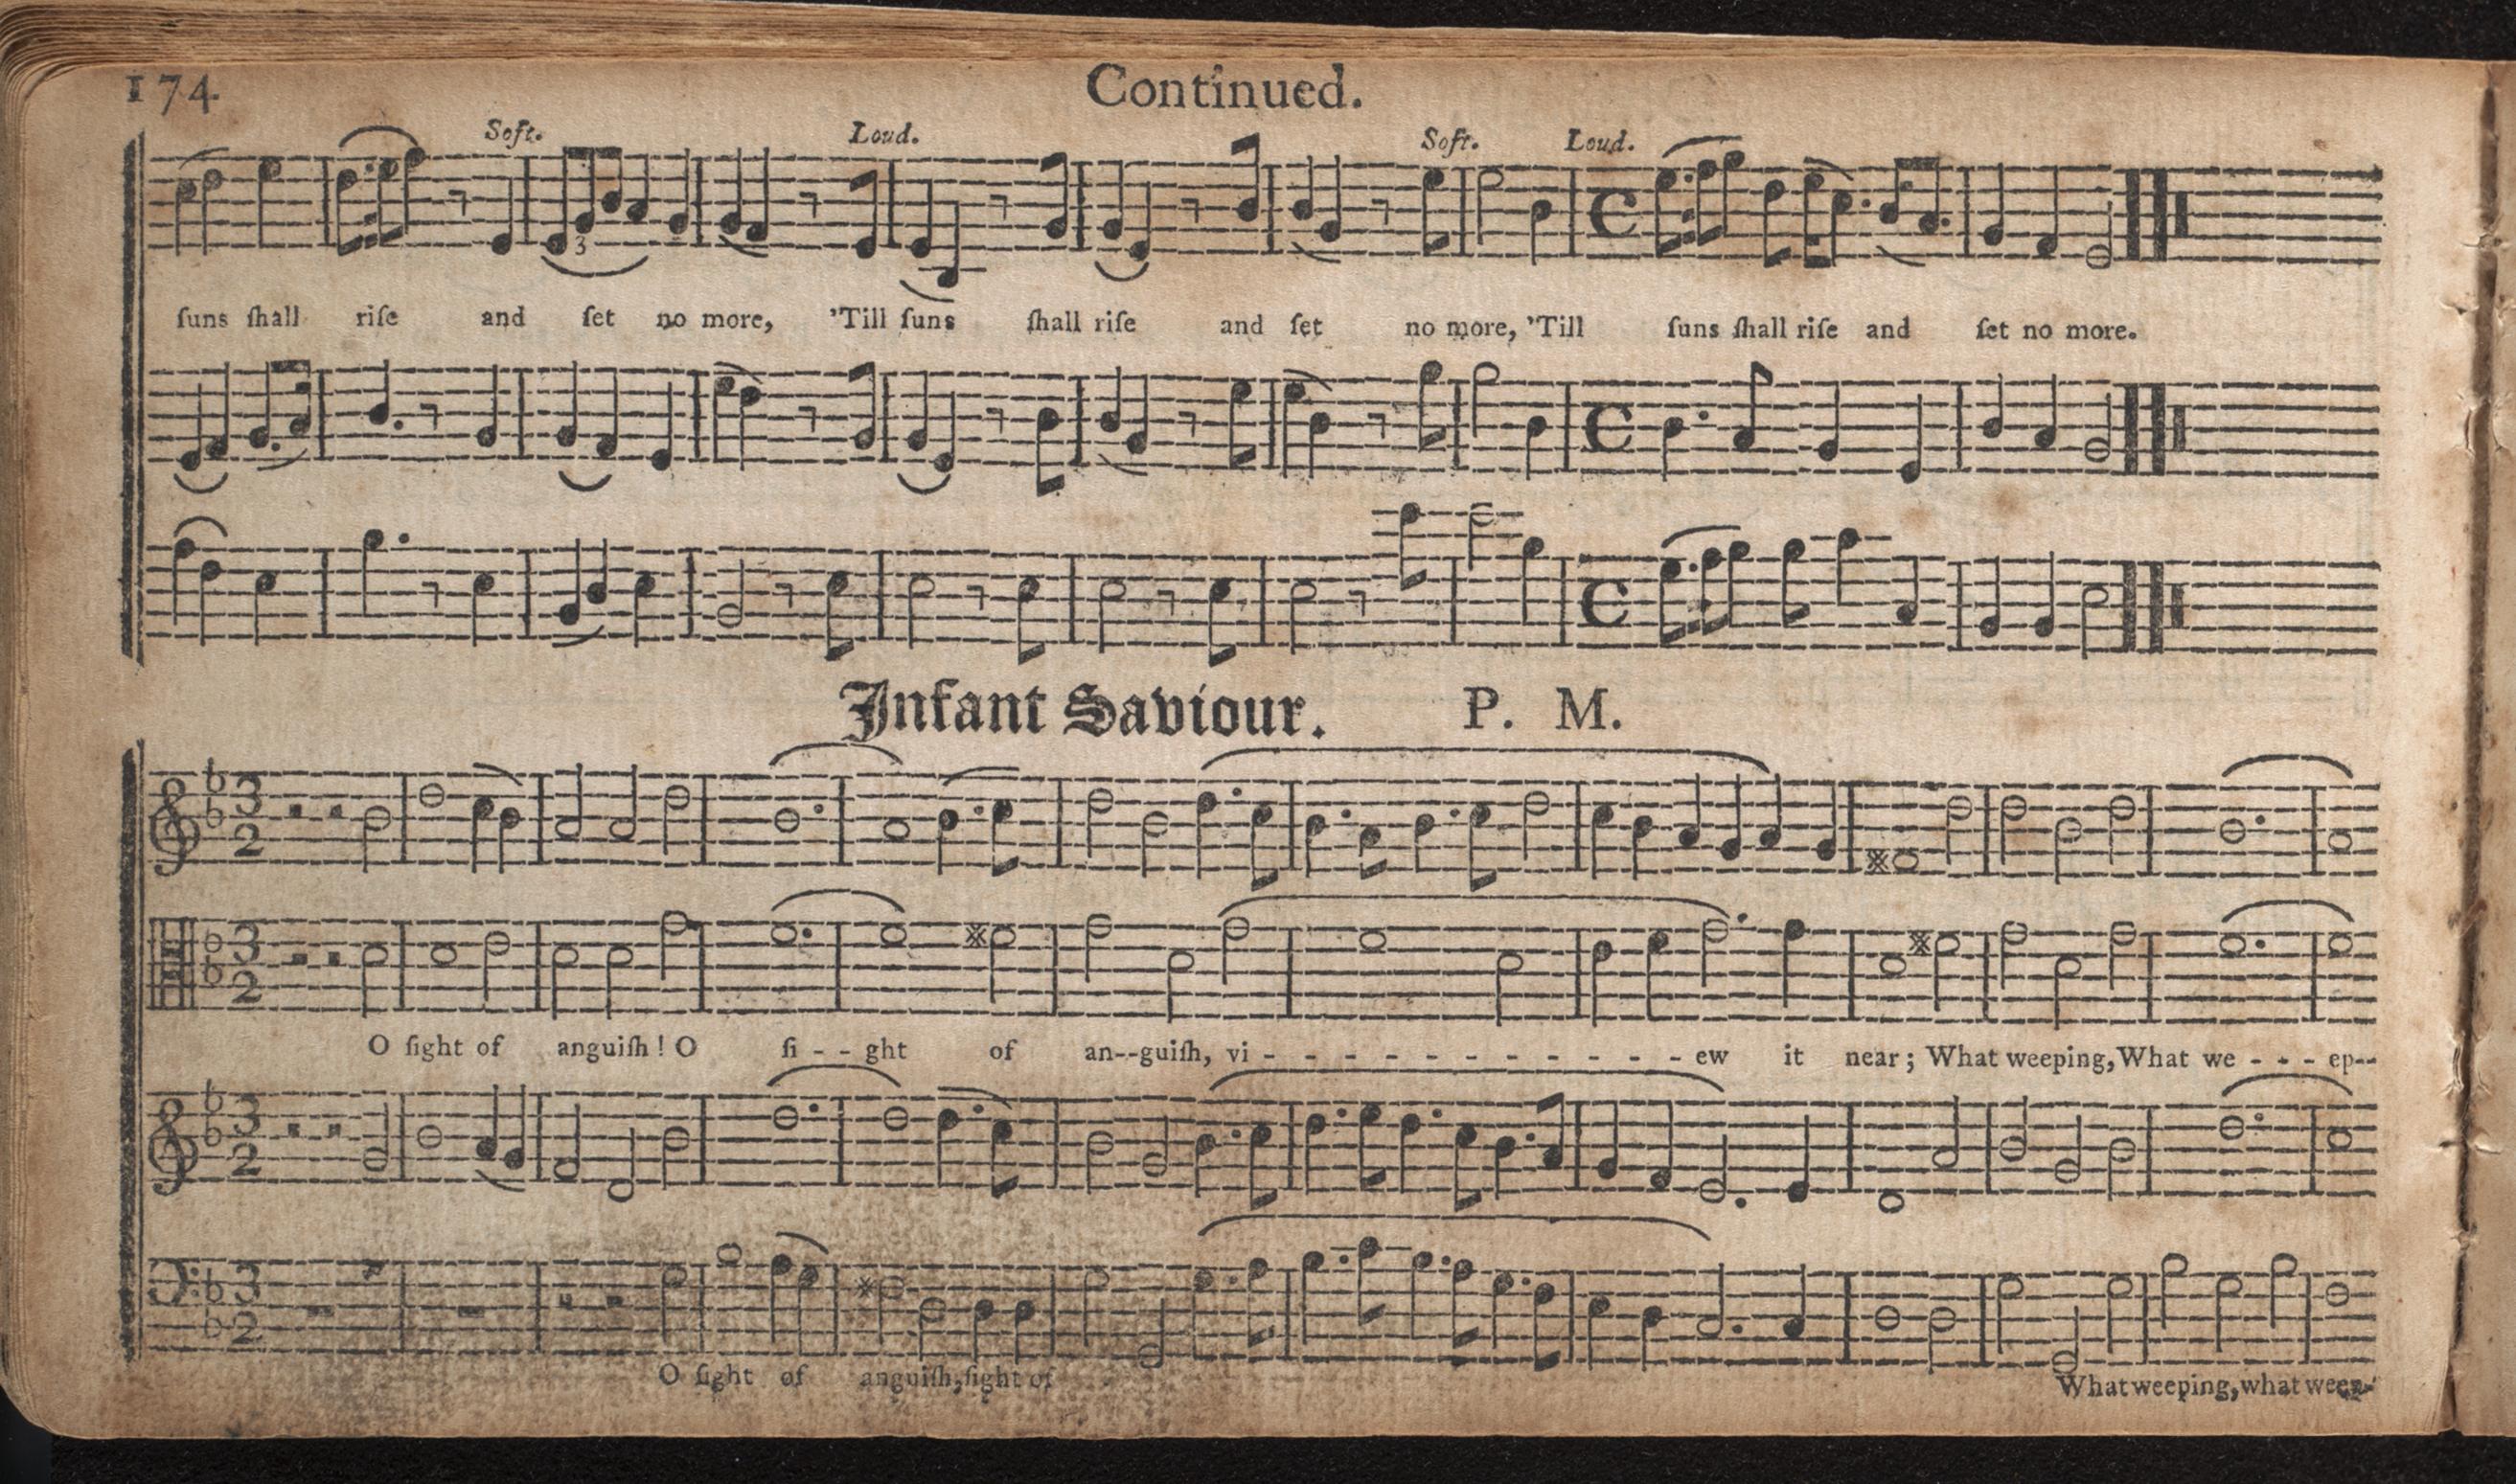 174
Continued.
Soft. Loud. Soft. Loud.
3
ſuns ſhall riſe and ſet no more, 'Till ſuns ſhall riſe and ſet no more, 'Till ſuns ſhall riſe and ſet no more.
Infant Saviour. P. M.
3 2
3 2
O ſight of anguiſh! O ſi - - ght of an--guiſh, vi - - - - - - - - - - - ew it near; What weeping, What we - - - ep--
3 2
3 2
O ſight of anguiſh, ſight of
What weeping, what weep-